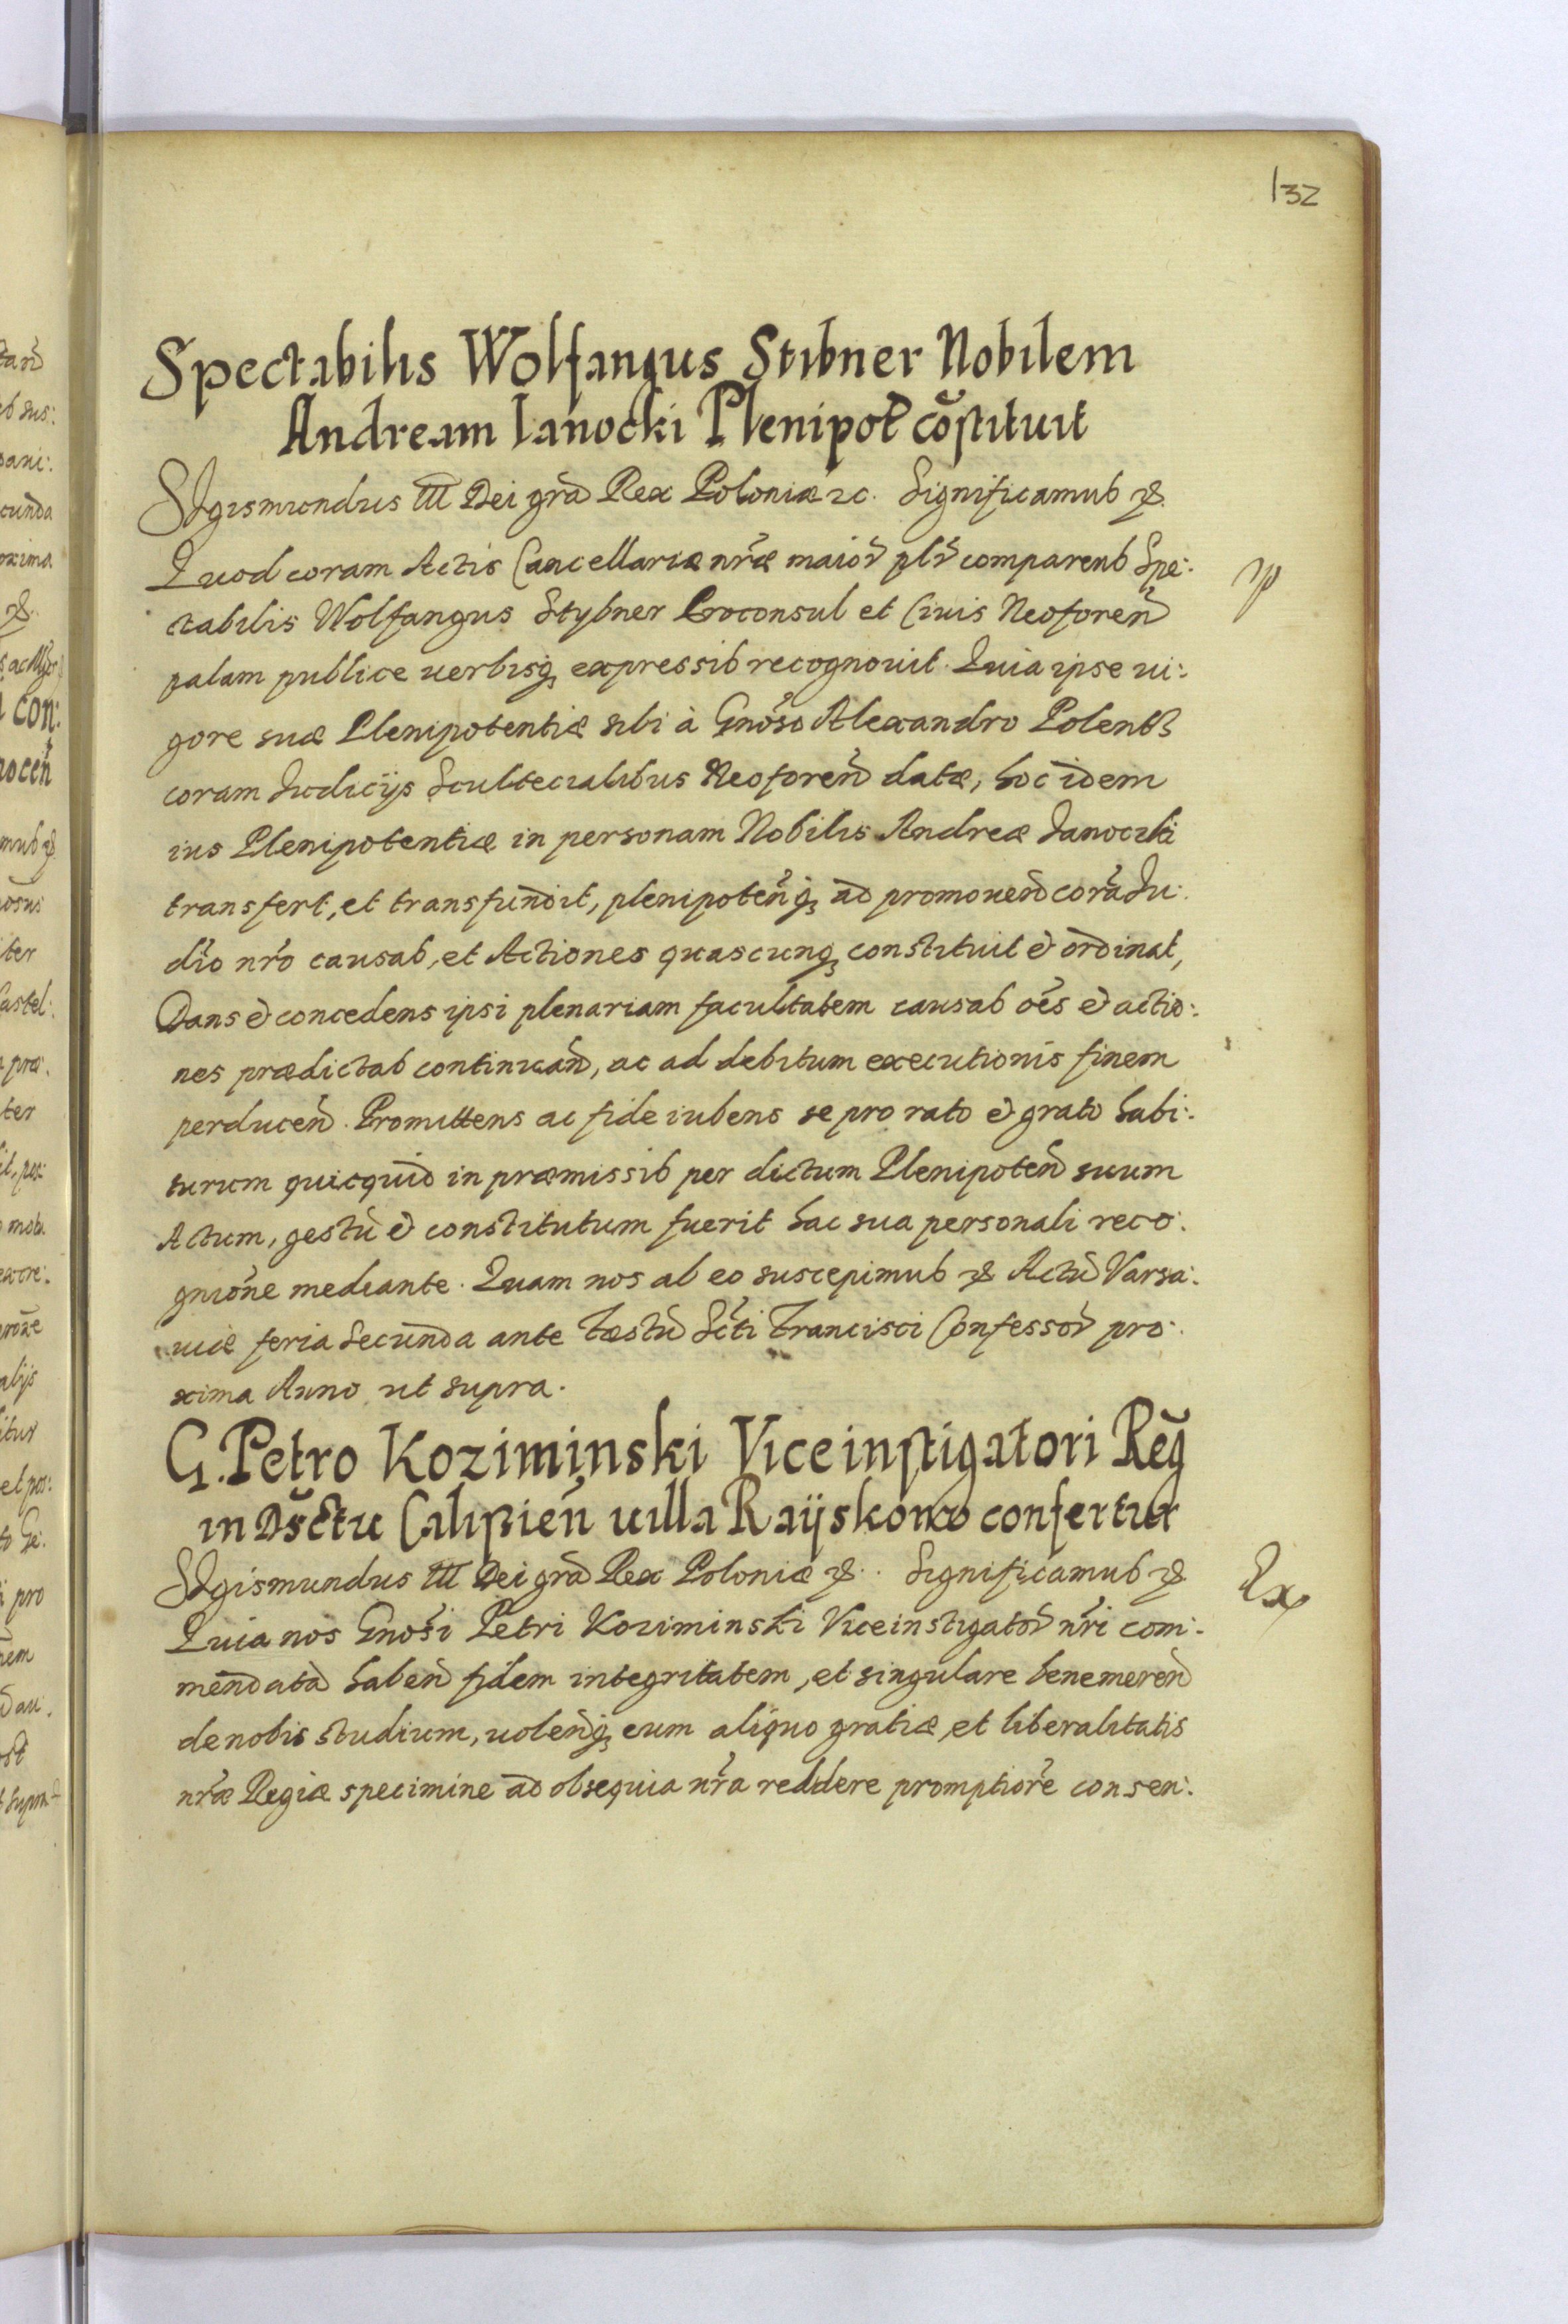 132
Spectabilis Wolfangus Stibner Nobilem
Andream Ianocki Plenipot̃ cõstituit
SIgismundus III Dei grã Rex Poloniæ ꝛc. Significamus ꝛc.
Quod coram Actis Cancellariæ nr̃æ maior̃ plr̃ comparens Spe:
ctabilis Wolfangus Stybner Proconsul et Ciuis Neoforeñ
palam publice uerbisq̃ expressis recognouit. Quia ipse ui:
gore suæ Plenipotentiæ sibi à Gnõso Alexandro Polentz
coram Iudicijs Scultecialibus Neoforeñ datæ, hoc idem
ius Plenipotentiæ in personam Nobilis Andreæ Ianoczki
transfert, et transfundit, plenipoteñq̃ ad promoueñ corã Iu:
dĩo nr̃o causas, et Actiones quascunq̃ constituit et ordinat,
Dans et concedens ipsi plenariam facultatem causas oẽs et actio:
nes prædictas continuañ, ac ad debitum executionis finem
perduceñ. Promittens ac fide iubens se pro rato et grato habi:
turum quicquid in præmissis per dictum Plenipoteñ suum
Actum, gestũ et constitutum fuerit hac sua personali reco:
gniõne mediante. Quam nos ab eo suscepimus ꝛc Actũ Varsa:
uiæ feria Secunda ante Fæstũ Sc̃ti Francisci Confessor̃ pro:
xima Anno ut supra.
G. Petro Koziminski Viceinstigatori Reg̃
in Dsc̃tu Calißieñ uilla Raijskowo confertur
SIgismundus III Dei grã Rex Poloniæ ꝛc. Significamus ꝛc
Quia nos Gnõsi Petri Koziminski Viceinstigator̃ nr̃i com:
mendatã habeñ fidem integritatem, et singulare benemereñ
de nobis studium, uoleñq̃ eum aliquo gratiæ, et liberalitatis
nr̃æ Regiæ specimine ad obsequia nr̃a reddere promptiorẽ consen: